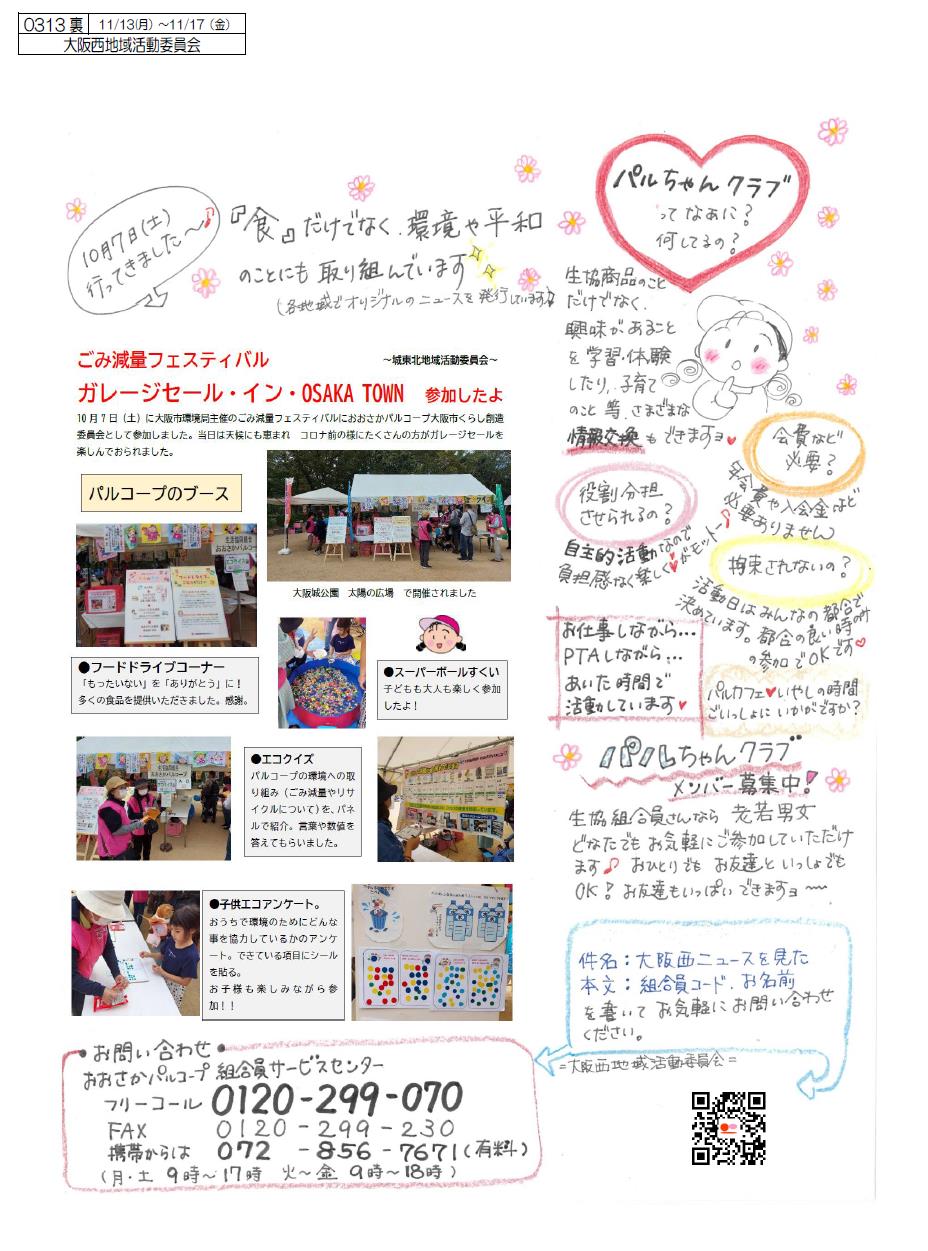 0313 裏 11/13(月)～11/17（金）
大阪西地域活動委員会
10月7日(土)
行ってきました～♪
『食』だけでなく、環境や平和
のことにも取り組んでいます
(各地域でオリジナルのニュースを発行しています)
ごみ減量フェスティバル
～城東北地域活動委員会～
ガレージセール・イン・OSAKA TOWN 参加したよ
10月7日（土）に大阪市環境局主催のごみ減量フェスティバルにおおさかパルコープ大阪市くらし創造
委員会として参加しました。当日は天候にも恵まれ　コロナ前の様にたくさんの方がガレージセールを
楽しんでおられました。
パルコープのブース
大阪城公園　太陽の広場　で開催されました
●フードドライブコーナー
「もったいない」を「ありがとう」に！
多くの食品を提供いただきました。感謝。
●スーパーボールすくい
子どもも大人も楽しく参加
したよ！
●エコクイズ
パルコープの環境への取
り組み（ごみ減量やリサ
イクルについて）を、パネ
ルで紹介。言葉や数値を
答えてもらいました。
●子供エコアンケート。
おうちで環境のためにどんな
事を協力しているかのアンケ
ート。できている項目にシール
を貼る。
お子様も楽しみながら参
加！！
パルちゃんクラブ
ってなあに？
何してるの？
生協商品のこと
だけでなく、
興味があること
を学習・体験
したり、子育て
のこと等、さまざまな
情報交換もできますョ♥
会費など
必要？
年会費や入会金など
必要ありません
役割分担
させられるの？
自主的活動なので
負担感なく楽しく♥がモットー♪
拘束されないの？
活動日はみんなの都合で
決めています。都合の良い時のみ
の参加でOKです♥
お仕事しながら…
PTAしながら…
あいた時間で
活動しています♥
パルカフェ♥いやしの時間
ごいっしょにいかがですか？
パルちゃんクラブ
メンバー募集中！
生協組合員さんなら 老若男女
どなたでもお気軽にご参加していただけ
ます♪ おひとりでも お友達といっしょでも
OK！お友達もいっぱいできますョ～
件名：大阪西ニュースを見た
本文：組合員コード、お名前
を書いてお気軽にお問い合わせ
ください。
=大阪西地域活動委員会=
・お問い合わせ・
おおさかパルコープ 組合員サービスセンター
フリーコール 0120-299-070
FAX 0120-299-230
携帯からは 072-856-7671(有料)
(月・土 9時～17時 火～金 9時～18時)